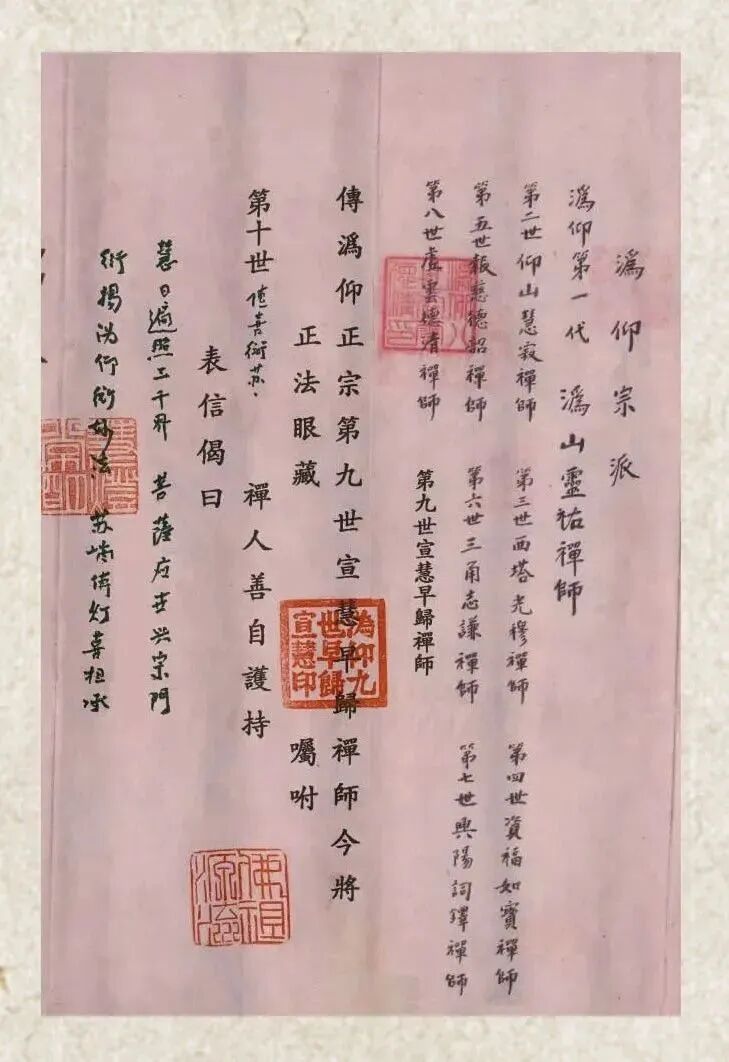 溈仰宗派
溈仰第一代 溈山靈祐禪師
第二世仰山慧寂禪師 第三世西塔光穆禪師 第四世資福如寶禪師
第五世報慈德韶禪師 第六世三角志謙禪師 第七世興陽詞鐸禪師
第八世虛雲德清禪師 第九世宣慧早歸禪師
傳溈仰正宗第九世宣慧早歸禪師今將
正法眼藏 囑咐
第十世传喜衍苏、 禪人善自護持
表信偈曰
慧日遍照三千界 菩薩应世兴宗门
衍揚沩仰妙法 苏传灯喜担承
溈仰九世早歸宣慧印
佛祖源流